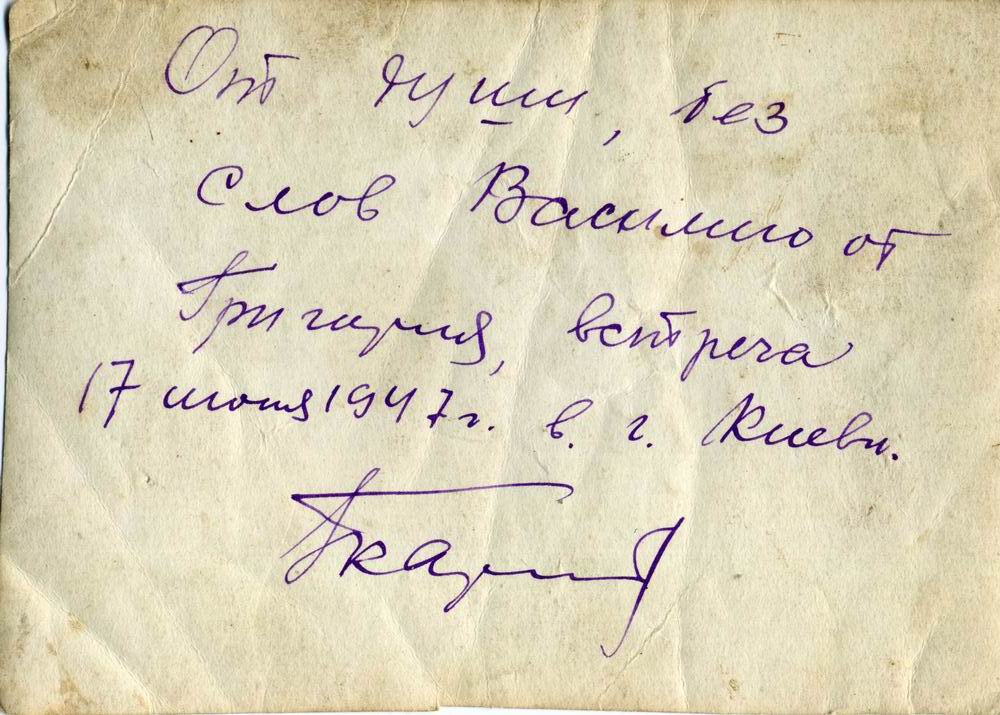 От души, без
слов Василию от
Григория, встреча
17 июня 1947 г. в. г. Киеве.